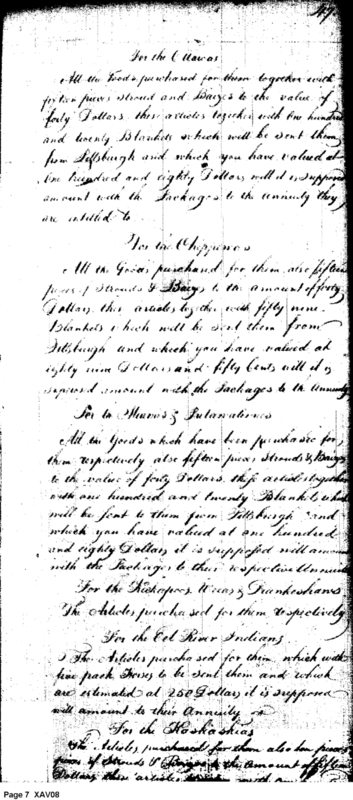 47
For the Ottawas
All the Goods purchased for them together with
fifteen pieces Stroud and Baizes to the value of
forty Dollars. these articles together with One hundred
and twenty Blankets which will be sent them
from Pittsburgh and which you have valued at
One hundred and eighty Dollars will it is supposed
amount with the Packages to the Annuity they
are intitled to
For the Chippewas
All the Goods purchased for them also fifteen
pieces of Strouds & Baizes to the amount of forty
Dollars, these articles together with fifty nine
Blankets which will be sent them from
Pittsburgh and which you have valued at
eighty nine Dollars and fifty Cents will it is
supposed amount with the Packages to the Annuity
For the &
All the Goods which have been purchased for
them respectively also fifteen pieces Strouds & Baizes
to the value of forty Dollars. these articles together
with one hundred and twenty Blankets which
will be sent to them from Pittsburgh and
which you have valued at one hundred
and eighty Dollars it is supposed will amount
with the Packages to their respective Annuit
For the Kickapoos, Weas & Piankeshaws
The Articles purchased for them respectively
For the Eel River Indians
The Articles purchased for them which with
five pack to be sent them and which
are estimated at 250 Dollars it is supposed
will amount to their Annuity
For the Kaskaskias
The Articles purchased for them also
pieces of Strouds & Baizes to the amount of fifteen
Dollars these articles
Page 7 XAV08